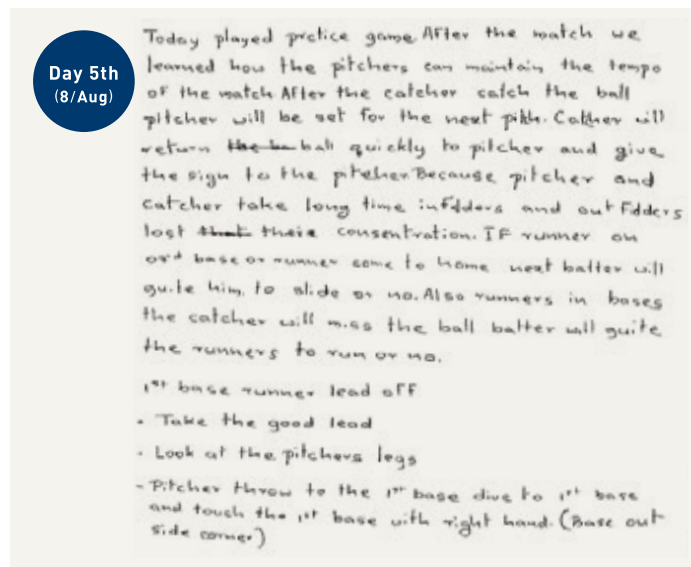 Day 5th
(8/Aug)
Today played prctice game After the match we
learned how the pitchers can maintain the tempo
of the match After the catcher catch the ball
pitcher will be set for the next pith. Cather will
return the ba ball quickly to pitcher and give
the sign to the pitcher. Because pitcher and
catcher take long time infdders and out Fdders
lost that their consentration. IF runner on
base or runner come to home next batter will
guite him, to slide or no. Also runners in bases
the catcher will miss the ball batter will guite
the runners to run or no.
1st base runner lead off
- Take the good lead
- Look at the pitchers legs
- Pitcher throw to the 1st base dive to 1st base
and touch the 1st base with right hand. (Base out
side corner)